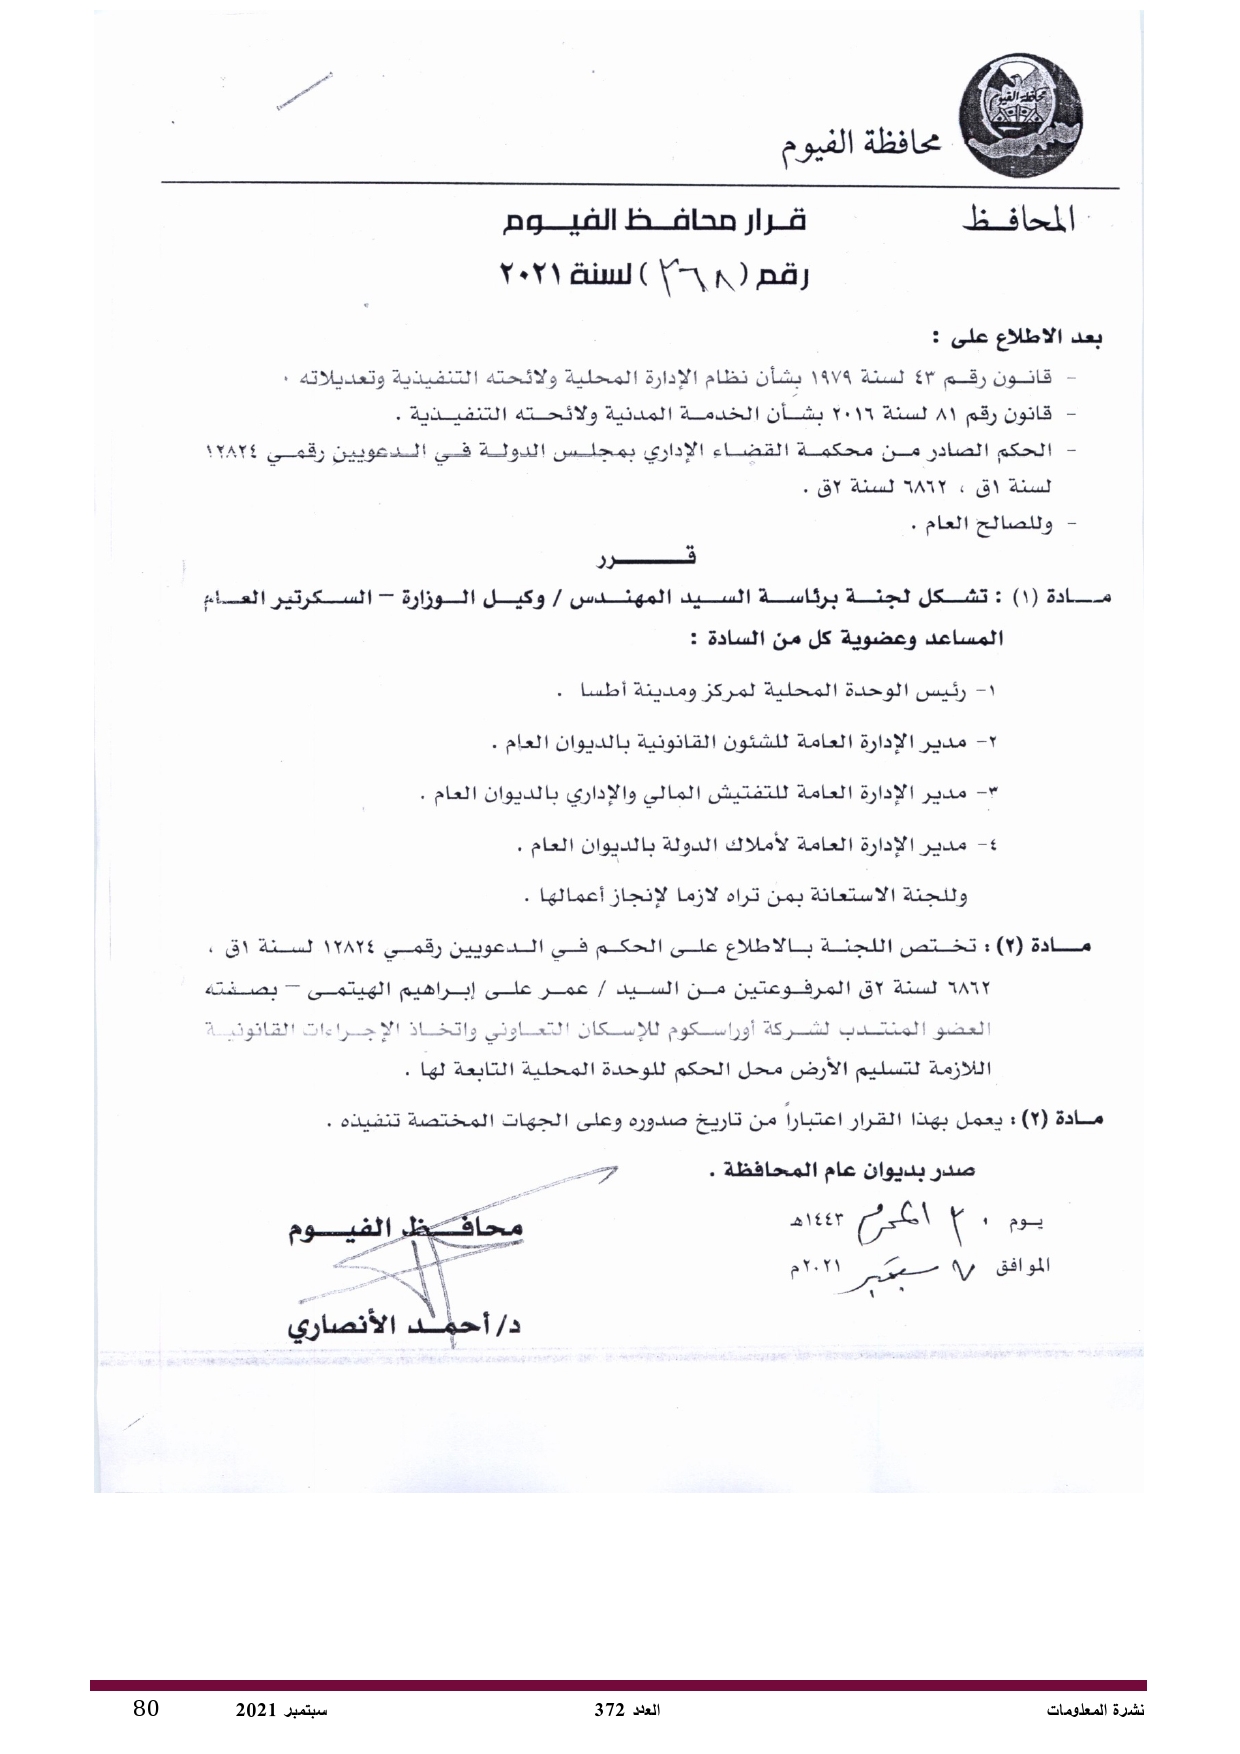 محافظة الفيوم
محافظة الفيوم
المحافــظ
قــرار محافــظ الفيــوم
رقم ( ٣٦٨ ) لسنة ٢٠٢١
بعد الاطلاع على :
- قانــون رقــم ٤٣ لسنة ١٩٧٩ بشأن نظام الإدارة المحلية ولائحته التنفيذية وتعديلاته .
- قانون رقم ٨١ لسنة ٢٠١٦ بشــأن الخدمــة المدنية ولائحــته التنفيــذية .
- الحكم الصادر مــن محكمــة القضــاء الإداري بمجلــس الدولــة فــي الــدعويين رقمــي ١٢٨٢٤
لسنة ١ق ، ٦٨٦٢ لسنة ٢ق .
- وللصالح العام .
قــــــرر
مــــادة (١) : تشــكل لجنــة برئاســة الســيد المهنــدس / وكيــل الــوزارة – الســكرتير العــام
المساعد وعضوية كل من السادة :
١- رئيس الوحدة المحلية لمركز ومدينة أطسا .
٢- مدير الإدارة العامة للشئون القانونية بالديوان العام .
٣- مدير الإدارة العامة للتفتيش المالي والإداري بالديوان العام .
٤- مدير الإدارة العامة لأملاك الدولة بالديوان العام .
وللجنة الاستعانة بمن تراه لازما لإنجاز أعمالها .
مــــادة (٢) : تخــتص اللجنة بــالاطلاع علــى الحكم فــي الــدعويين رقمــي ١٢٨٢٤ لســنة ١ق ،
٦٨٦٢ لسنة ٢ق المرفــوعتين مــن السيد / عمــر علــى إبــراهيم الهيتمــى – بصــفته
العضو المنتــدب لشــركة أوراســكوم للإســكان التعــاوني واتخــاذ الإجــراءات القانونيــة
اللازمة لتسليم الأرض محل الحكم للوحدة المحلية التابعة لها .
مــادة (٢) : يعمل بهذا القرار اعتباراً من تاريخ صدوره وعلى الجهات المختصة تنفيذه .
صدر بديوان عام المحافظة .
يــوم ٣٠ المحرم ١٤٤٣هـ
الموافق ٧ سبتمبر ٢٠٢١م
محافــظ الفيــوم
د/ أحمــد الأنصاري
نشرة المعلومات العدد 372 سبتمبر 2021 80